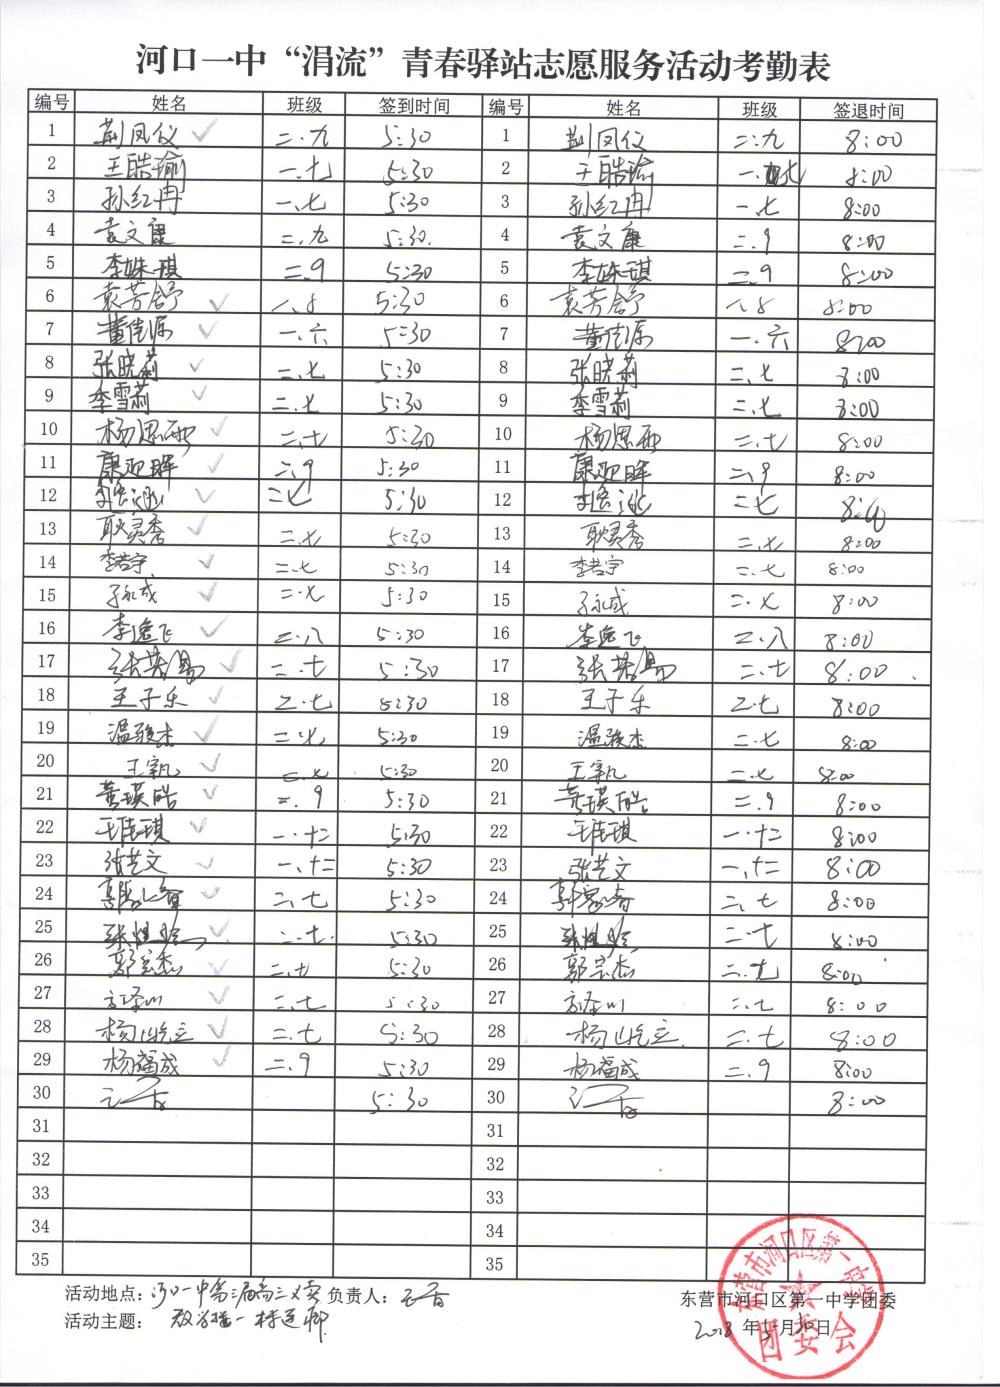 河口一中“涓流”青春驿站志愿服务活动考勤表
编号 姓名 班级 签到时间 编号 姓名 班级 签退时间
1 荆凤仪 二.九 5:30 1 荆凤仪 二.九 8:00
2 王皓瑜 一.七 5:30 2 王皓瑜 一.七 8:00
3 孙红冉 一.七 5:30 3 孙红冉 一.七 8:00
4 袁文康 二.九 5:30 4 袁文康 二.9 8:00
5 李姝琪 二.9 5:30 5 李姝琪 二.9 8:00
6 袁芳舒 5:30 6 袁芳舒 8:00
7 董佳源 一.六 5:30 7 董佳源 一.六 8:00
8 张晓莉 二.七 5:30 8 张晓莉 二.七 8:00
9 李雪莉 二.七 5:30 9 李雪莉 二.七 8:00
10 杨思雨 二.七 5:30 10 杨思雨 二.七 8:00
11 康迎晖 二.9 5:30 11 康迎晖 二.9 8:00
12 二七 5:30 12 二七 8:00
13 耿灵秀 二.七 5:30 13 耿灵秀 二.七 8:00
14 李若宇 二.七 5:30 14 李若宇 二.七 8:00
15 子永成 二.七 5:30 15 子永成 二.七 8:00
16 李逸飞 二.八 5:30 16 李逸飞 二.八 8:00
17 张若易 二.七 5:30 17 张若易 二.七 8:00
18 王子乐 二.七 5:30 18 王子乐 二.七 8:00
19 温骏杰 二.七 5:30 19 温骏杰 二.七 8:00
20 王 凡 二.七 5:30 20 王 凡 二.七 8:00
21 黄瑛皓 二.9 5:30 21 黄瑛皓 二.9 8:00
22 王佳琪 一.十二 5:30 22 王佳琪 一.十二 8:00
23 张艺文 一.十二 5:30 23 张艺文 一.十二 8:00
24 二.七 5:30 24 郭 二.七 8:00
25 张 二.七 5:30 25 张 二.七 8:00
26 郭宗杰 5:30 26 郭宗杰 8:00
27 方泽川 二.七 5:30 27 方泽川 二.七 8:00
28 杨屹立 二.七 5:30 28 杨屹立 二.七 8:00
29 杨福成 二.9 5:30 29 杨福成 二.9 8:00
30 5:30 30 8:00
31 31
32 32
33 33
34 34
35 35
活动地点： 河口一中 负责人：
东营市河口区第一中学团委
活动主题：
2018 年 月 日
东营市河口区第一中学
团委会